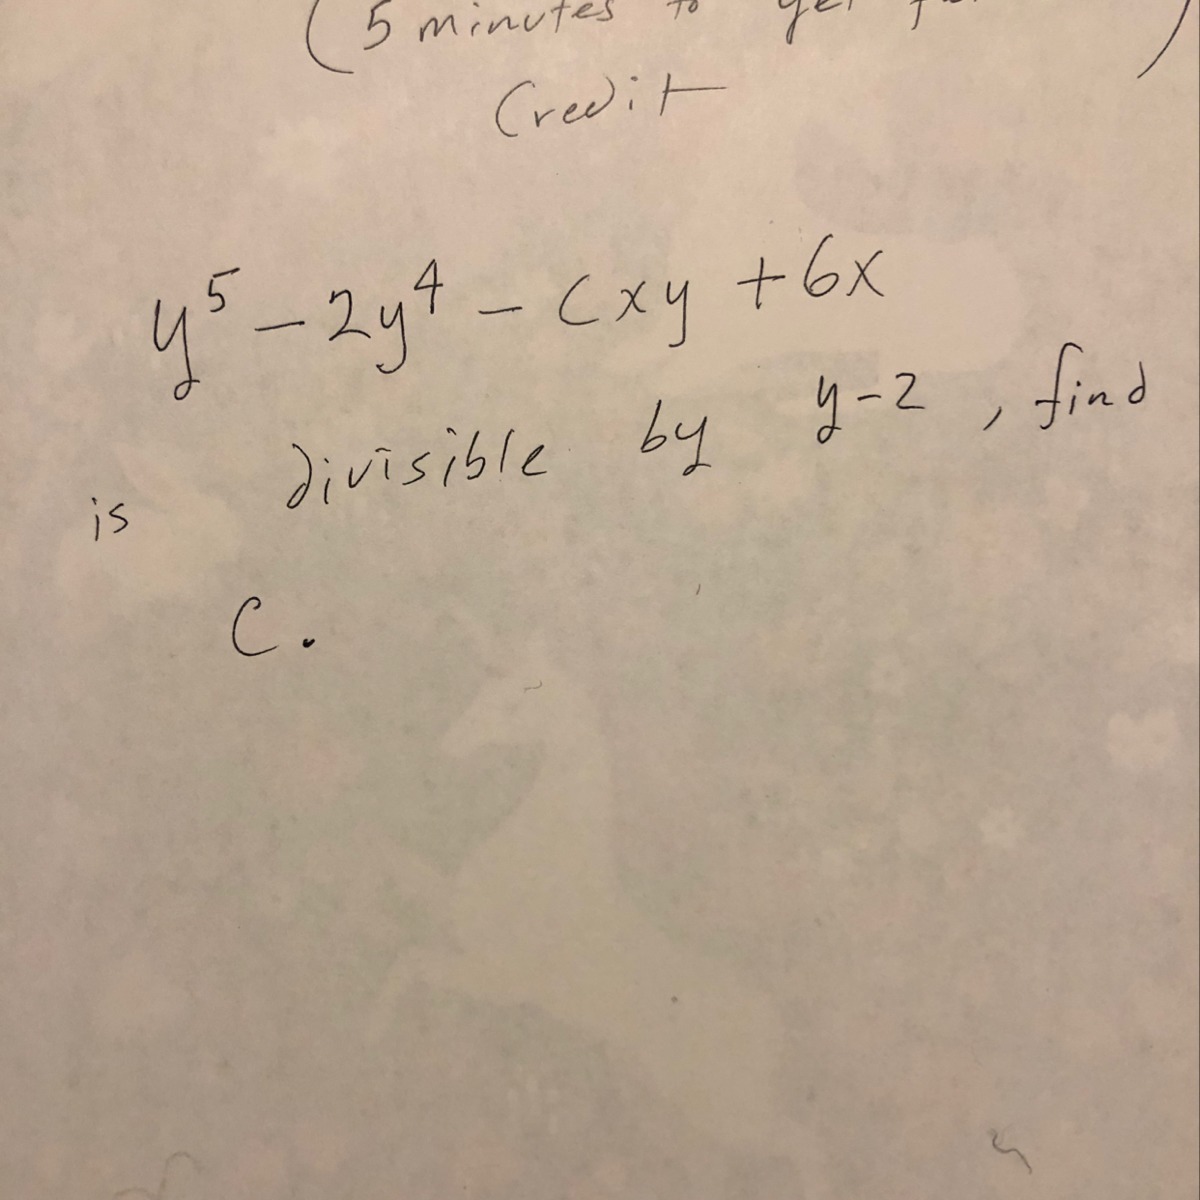 (5 minutes to get
Credit )
y⁵ - 2y⁴ - cxy + 6x
is divisible by y-2, find
C.